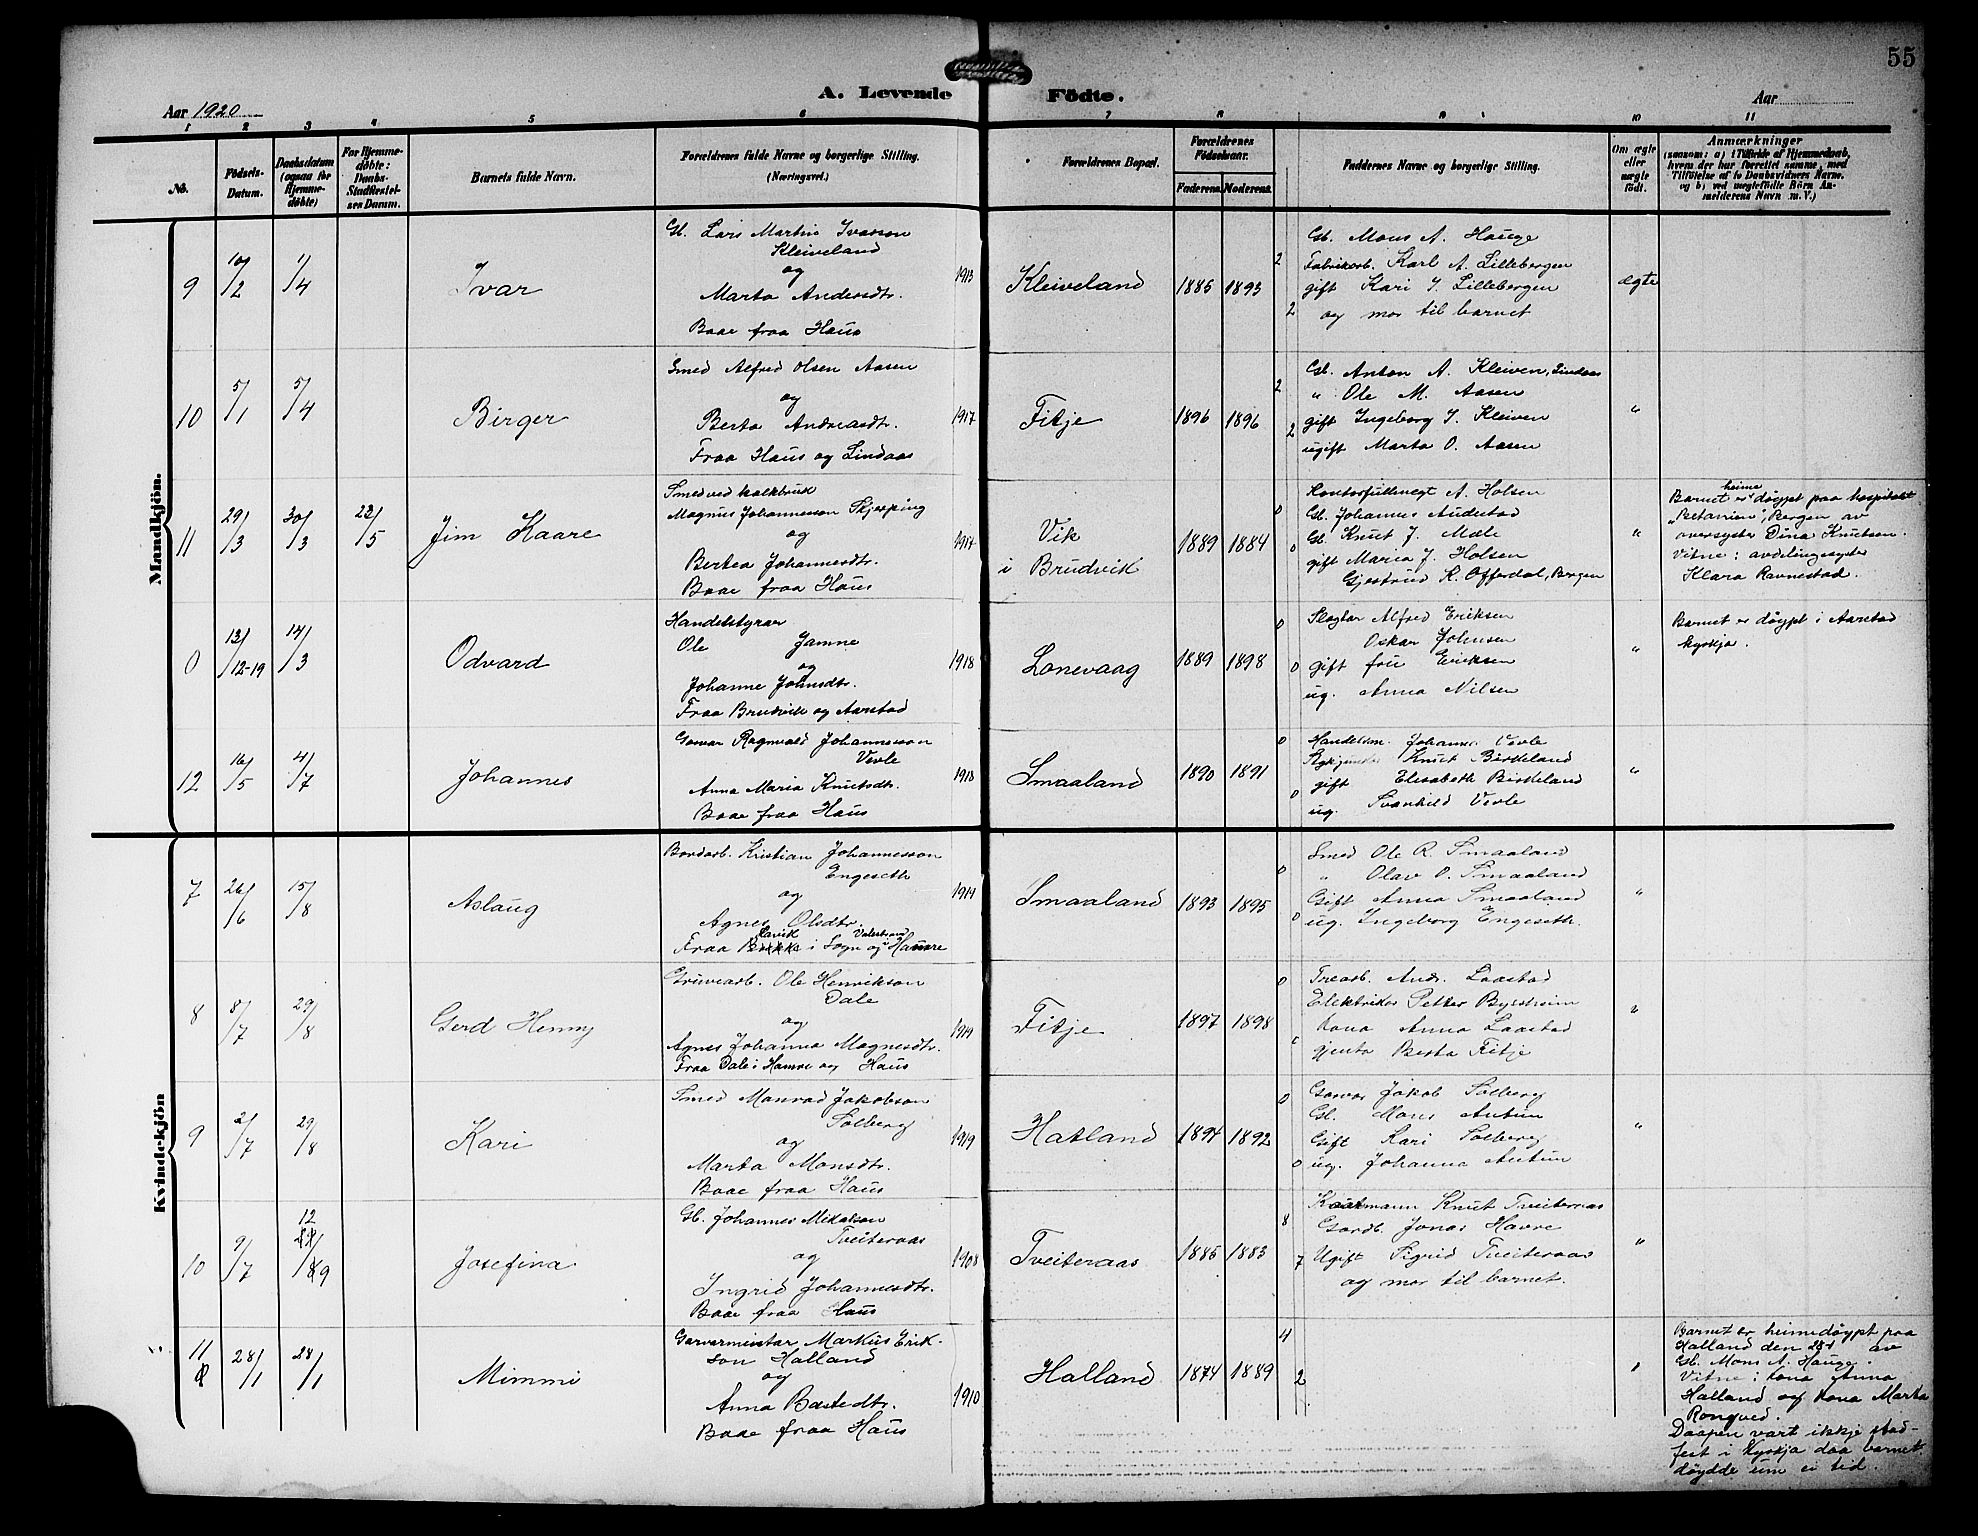 55
Aar 1920
A. Levende Födte.
Aar
1 2 3 4 5 6 7 8 9 10 11
No.
Födsels-Datum.
Daabsdatum (ogsaa for Hjemme-döbte)
For Hjemme-döbte: Daabs-Stadfæstel-ses Datum.
Barnets fulde Navn.
Forældrenes fulde Navne og borgerlige Stilling. (Næringsvei.)
Forældrenes Bopæl.
Forældrenes Födselsaar.
Faderens. Moderens.
Faddernes Navne og borgerlige Stilling.
Om ægte eller uægte födt.
Anmærkninger
(saasom: a) i Tilfælde af Hjemmedaab, hvem der har forrettet samme, med Tilföielse af to Daabsvidners Navne. og b) ved uægtefödte Börn An-melderens Navn m. V.)
Mandkjön.
9 10/2 1/4 Ivar
Gb. Lars Martin Ivarson
Kleiveland
og
Marta Andersdtr.
Baae fraa Haus
1913
Kleiveland 1885 1893
2
2
Gb. Mons A. Hauge
Fabrikarb. Karl A. Lillebergen
gift Kari J. Lillebergen
og mor til barnet
ægte
10 5/1 5/4 Birger
Smed Alfred Olsen Aasen
og
Berta Andreasdtr.
Fraa Haus og Lindaas
1917
Fitje 1896 1896
2
2
Gb. Anton A. Kleiven, Lindaas
" Ole M. Aasen
gift Ingeborg J. Kleiven
ugift Marta O. Aasen
"
11 29/3 30/3 23/5 Jim Kaare
Smed ved kalkbruk
Magnus Johannesson Skjerping
og
Bertea Johannesdtr.
Baae fraa Haus
1917
Vik
i Brudvik
1889 1884
0
0
Kontorfullmegt A. Holsen
Gb. Johannes Audestad
Gb. Knut J. Mæle
gift Maria J. Holsen
Gjertrud K. Offerdal, Bergen
"
Barnet er heime döypt paa hospitalet
"Betanien", Bergen av
oversyster Dina Knutsen.
Vitne: avdelingssyster
Klara Ravnestad.
0 13/12-19 14/3 Odvard
Handelstyrar
Ole Jamne
og
Johanne Johnsdtr.
Fraa Brudvik og Aarstad
1918
Lonevaag 1889 1898
0
0
Slagtar Alfred Eriksen
Oskar Johnsen
gift fru Eriksen
ug. Anna Nilsen
"
Barnet er döypt i Aarstad
kyrkja.
12 16/5 4/7 Johannes
Garvar Ragnvald Johannesson
Vevle
Anna Maria Knutsdtr.
Baae fraa Haus
1918
Smaaland 1890 1891
0
0
Handelsm. Johannes Vevle
Knut Birkeland
gift Elisabeth Birkeland
ug. Svanhild Vevle
"
Kvindekjön
7 26/6 15/8 Aslaug
Bordarb. Kristian Johannesson
Engeseth
og
Agnes Olsdtr.
Fraa Lavik i Sogn og Valestrand Hamre
1919
Smaaland 1893 1895
0
0
Smed Ole R. Smaaland
" Olav O. Smaaland
Gift Anna Smaaland
ug. Ingeborg Engeseth
"
8 8/7 29/8 Gerd Henny
Gruvearb. Ole Henrikson
Dale
og
Agnes Johanna Magnesdtr.
Fraa Dale i Hamre og Haus
1919
Fitje 1897 1898
0
Trearb. Andr. Laastad
Elektriker Petter Byrstheim
kona Anna Laastad
gjenta Berta Fitje
"
9 2/7 29/8 Kari
Smed Monrad Jakobson
Solberg
og
Marta Monsdtr.
Baae fraa Haus
1919
Hatland 1894 1892
0
0
Garvar Jakob Solberg
Gb. Mons Autun
Gift Kari Solberg
ug. Johanna Autun
"
10 9/7 12/9 Josefina
Gb. Johannes Mikalson
Tveiteraas
og
Ingrid Johannesdtr.
Baae fraa Haus
1908
Tveiteraas 1885 1883
8
7
Kaarmann Knut Tveiteraas
Gardb. Jonas Havre
Ugift Sigrid Tveiteraas
og mor til barnet.
"
11 28/1 28/1 Mimmi
Garvermeistar Markus Erik-
son Halland
og
Anna Bastedtr.
Baae fraa Haus
1910
Halland 1874 1889
4
2
"
Barnet er heimedöypt paa
Halland den 28/1 av
Gb. Mons A. Hauge.
Vitne: kona Anna
Halland og kona Marta
Rongved.
Daapen vart ikkje stad-
fest i kyrkja daa barnet
döydde um ei tid.